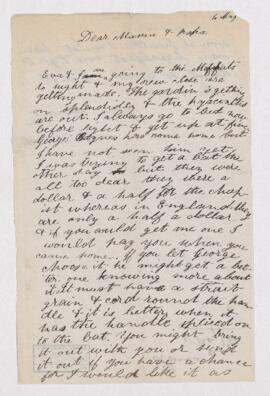 6 May
Dear Mama & papa
Eva & I am going to the
to night & my new close are
getting made. The gardin is getting
on splendidly & the hyacinths
are out. I always go to bed now
before eight & get up at five
George Agnes has come home but
I have not seen him yet.
I was trying to get a bat the
other day but they were
all too dear they there a
dollar & a half for the cheap
ist whereas in England they
are only a half a dollar
& if you could get me one I
would pay you when you
came home. If you let George
choose it he might get a bet
ter one knowing more about
it. It must have a strait
grain & cord round the han
dle & it is better when it
has the handle spliced on
to the bat. You might bring
it out with you or send
it out if you have a chance
for I would like it as